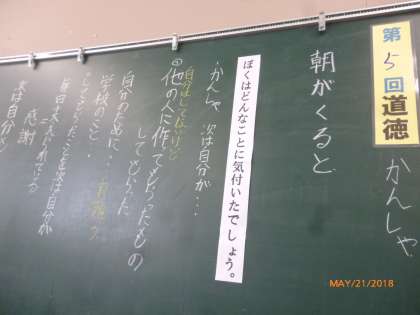 第5回道徳
かんしゃ
朝がくると
ぼくはどんなことに気付いたでしょう。
・かんしゃ 次は自分が・・・
自分はしてないけど
他の人に作ってもらったもの
してもらった
自分のために・・・
学校のこと・・・
してもらったことを次は自分が
感謝
次は自分が
MAY/21/2018